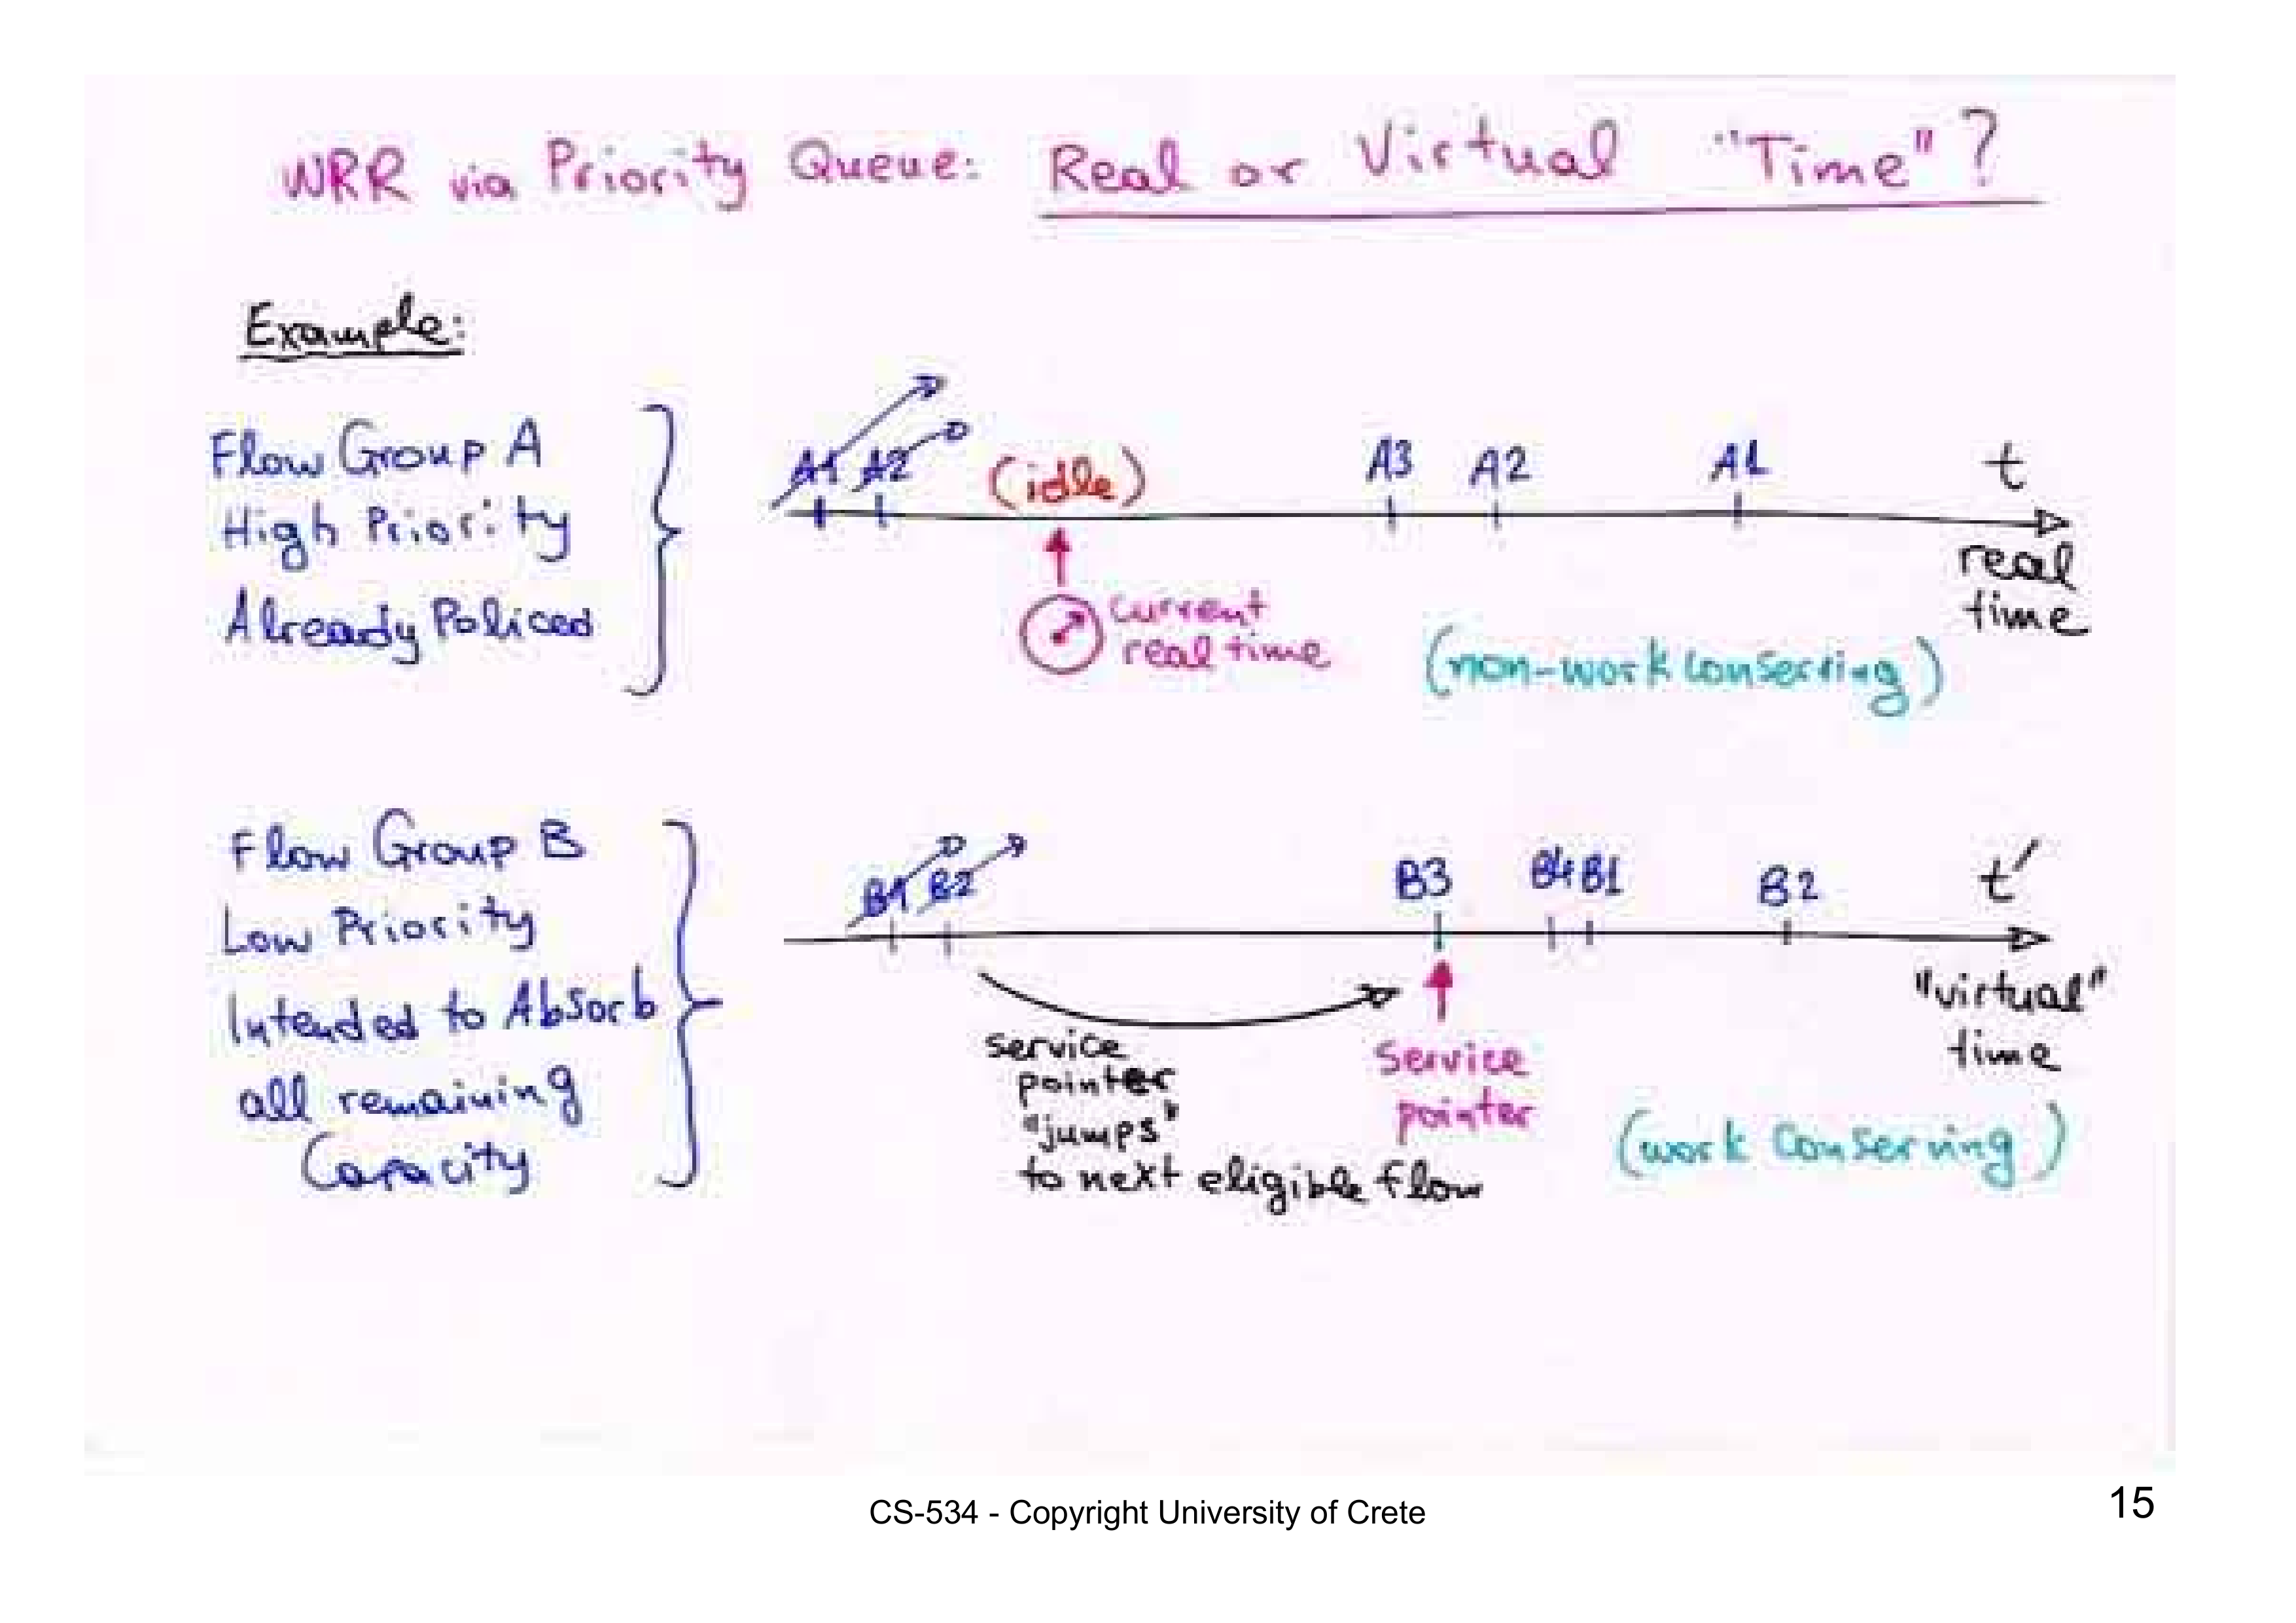 WRR via Priority Queue: Real or Virtual "Time"?
Example:
Flow Group A
High Priority
Already Policed
A1 A2 (idle) A3 A2 A1 t
real
time
current
real time
(non-work conserving)
Flow Group B
Low Priority
Intended to Absorb
all remaining
Capacity
B1 B2 B3 B4 B1 B2 t'
"virtual"
time
service
pointer
"jumps"
to next eligible flow
Service
pointer
(work conserving)
CS-534 - Copyright University of Crete
15